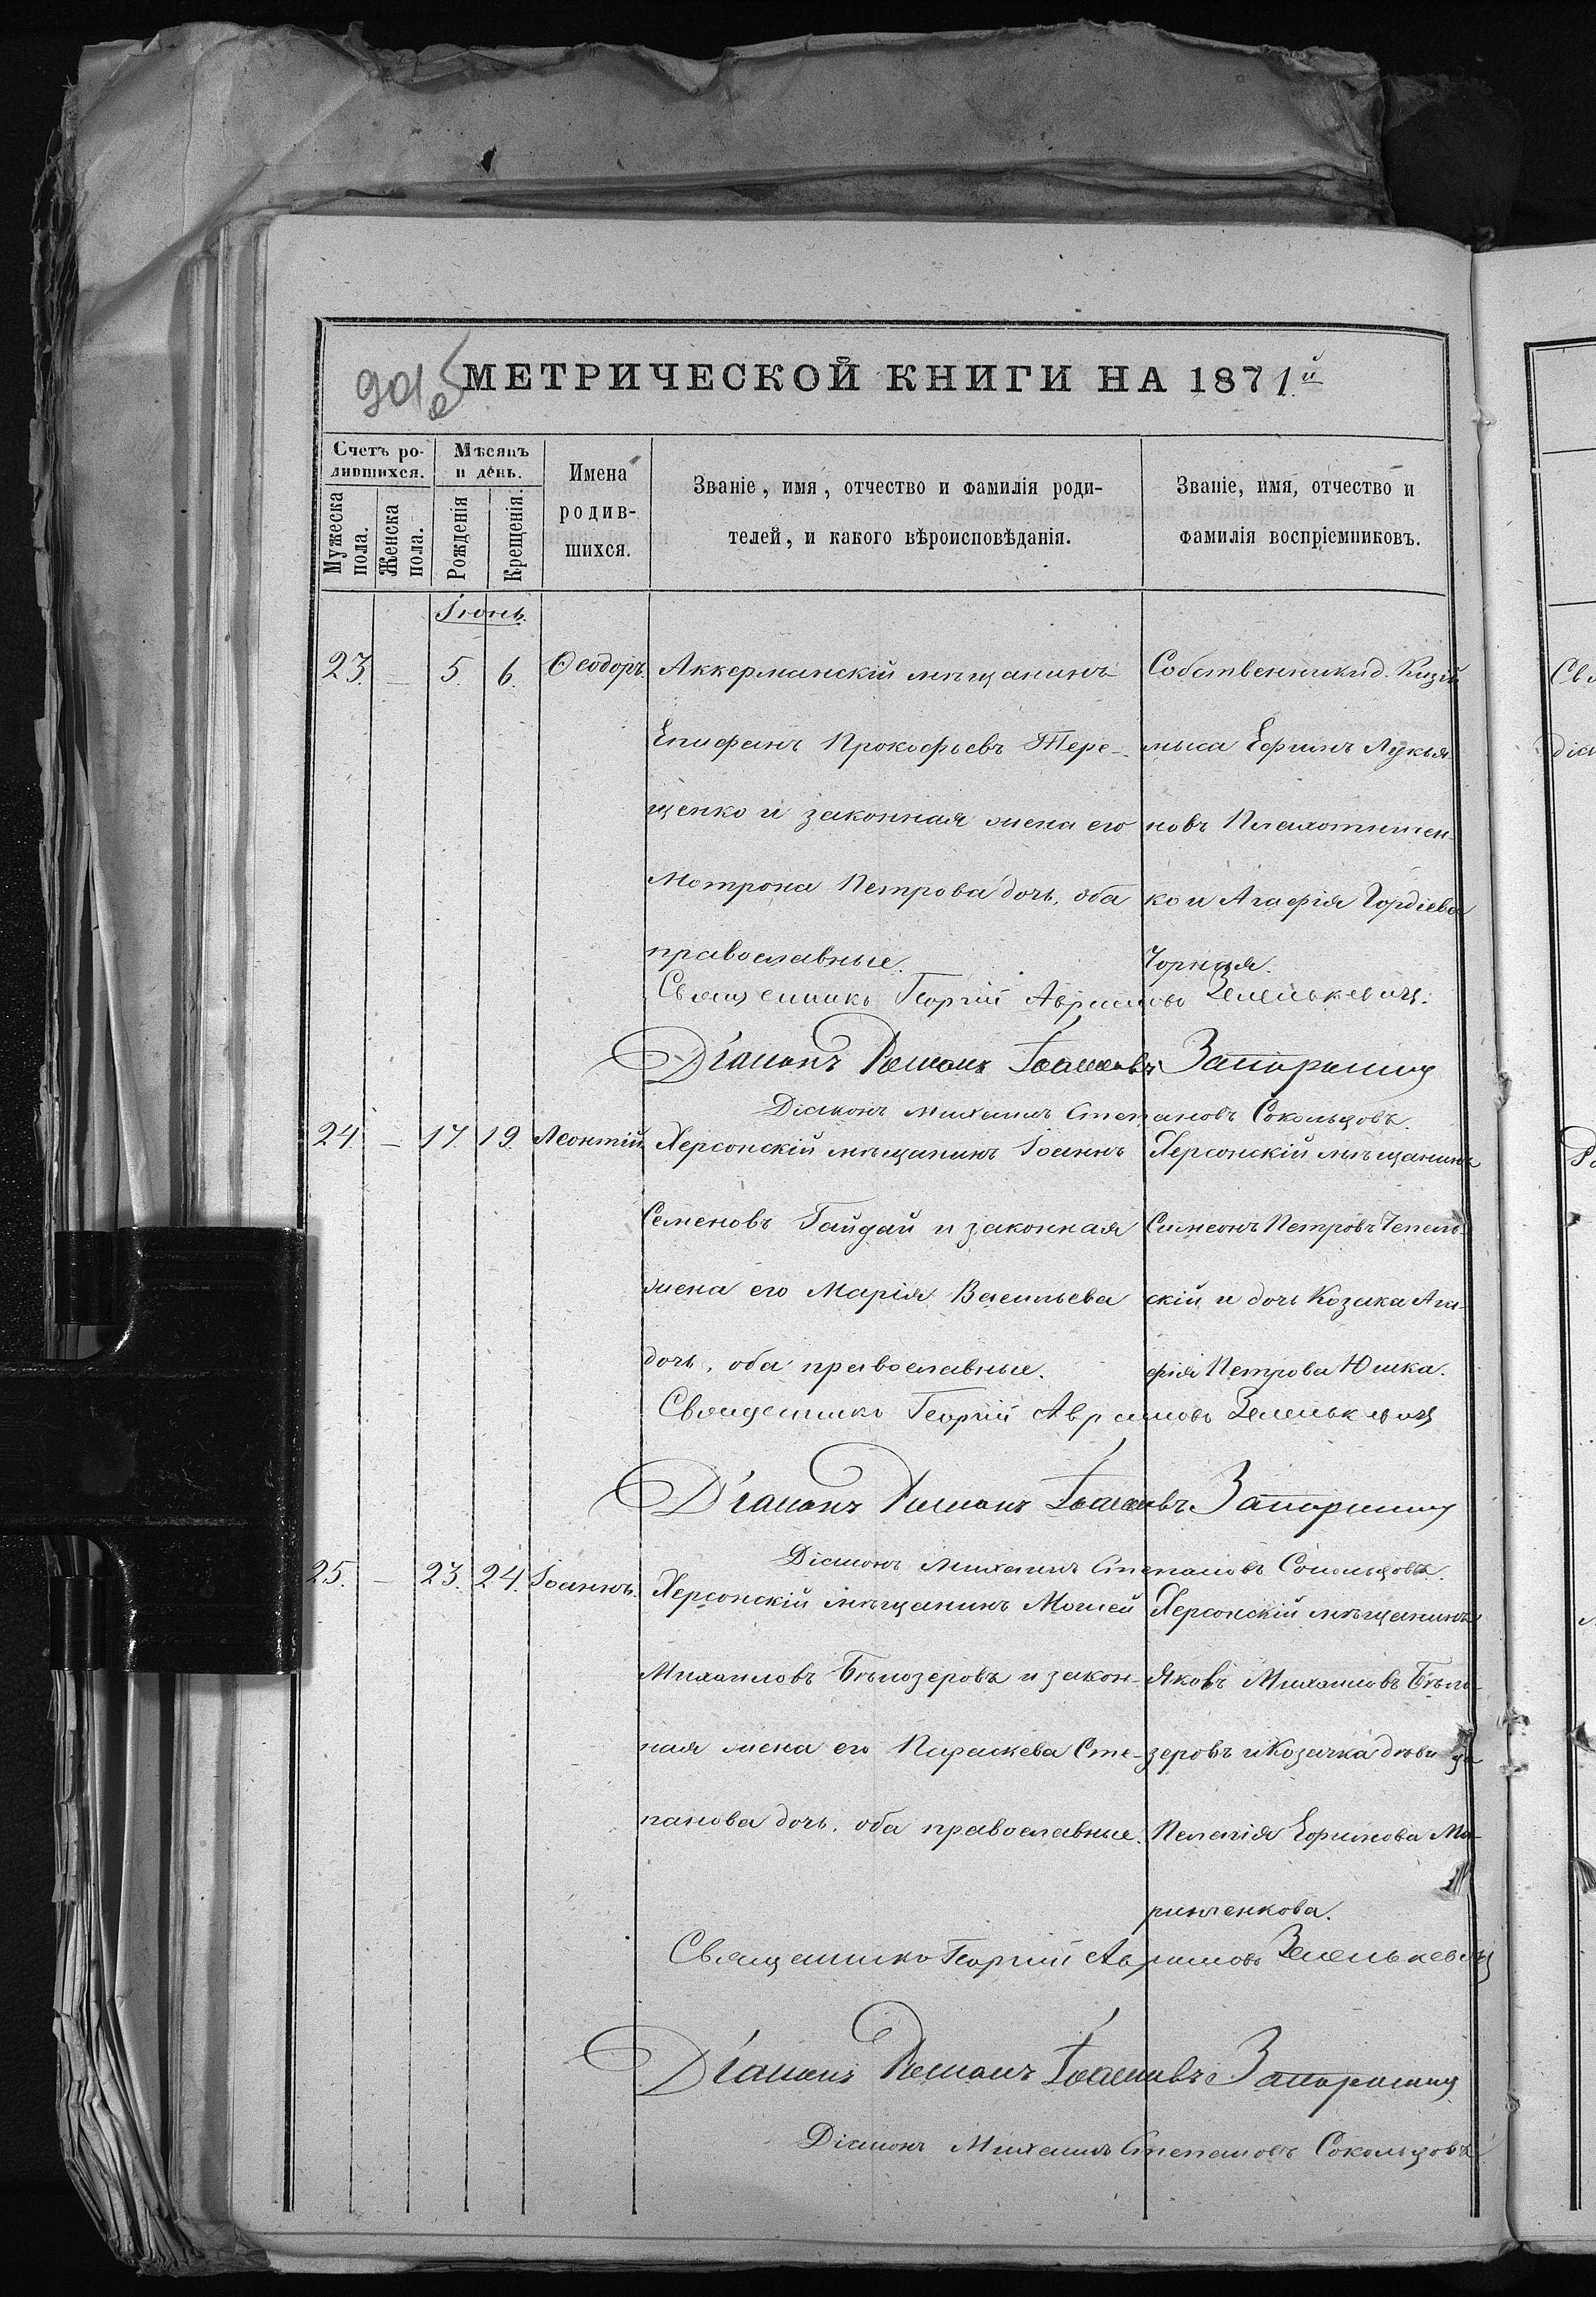 901 об
МЕТРИЧЕСКОЙ КНИГИ НА 1871й
Счетъ ро-
дившихся.
Мужеска
пола.
Женска
пола.
Мѣсяцъ
и день.
Рожденія
Крещенія.
Имена
родив-
шихся.
Званіе, имя, отчество и фамилія роди-
телей, и какого вѣроисповѣданія.
Званіе, имя, отчество и
фамилія воспріемниковъ.
Іюнь.
23. — 5. 6. Ѳеодоръ.
Аккерманскій мѣщанинъ
Епифанъ Прокофьевъ Тере-
щенко и законная жена его
Мотрона Петрова дочь, оба
православные.
Собственникъ д. Кизій
мыса Ефимъ Лукья-
новъ Плахотничен-
ко и Агафія Гордіева
Чорная.
Священникъ Георгій Аврамовъ Зеленькевичъ.
Діаконъ Романъ Іоанновъ
Діаконъ Михаилъ Степановъ Сокольцовъ.
24. — 17. 19. Леонтій.
Херсонскій мѣщанинъ Іоаннъ
Семеновъ Гайдай и законная
жена его Марія Васильева
дочь, оба православные.
Херсонскій мѣщанинъ
Симеонъ Петровъ Чепель-
скій и дочь Козака Ага-
фія Петрова Юшка.
Священникъ Георгій Аврамовъ Зеленькевичъ
Діаконъ Романъ Іоанновъ
Діаконъ Михаилъ Степановъ Сокольцовъ.
25. — 23. 24. Іоаннъ.
Херсонскій мѣщанинъ Моисей
Михаиловъ Бѣлозеровъ и закон-
ная жена его Параскева Сте-
панова дочь, оба православные.
Херсонскій мѣщанинъ
Яковъ Михаиловъ Бѣло-
зеровъ и Козачка дѣвица
Пелагія Ефимова Ма-
ринченкова.
Священникъ Георгій Аврамовъ Зеленькевичъ
Діаконъ Романъ Іоанновъ
Діаконъ Михаилъ Степановъ Сокольцовъ